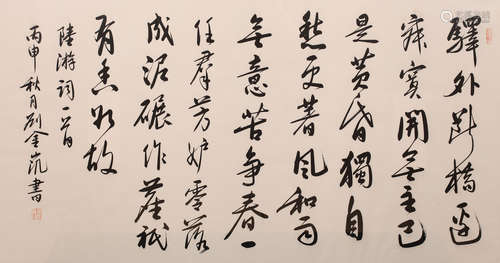 驛外斷橋邊
寂寞開無主已
是黃昏獨自
愁更著風和雨
無意苦爭春一
任羣芳妒零落
成泥碾作塵祇
有香如故
陸游詞一首
丙申秋月劉金凱書